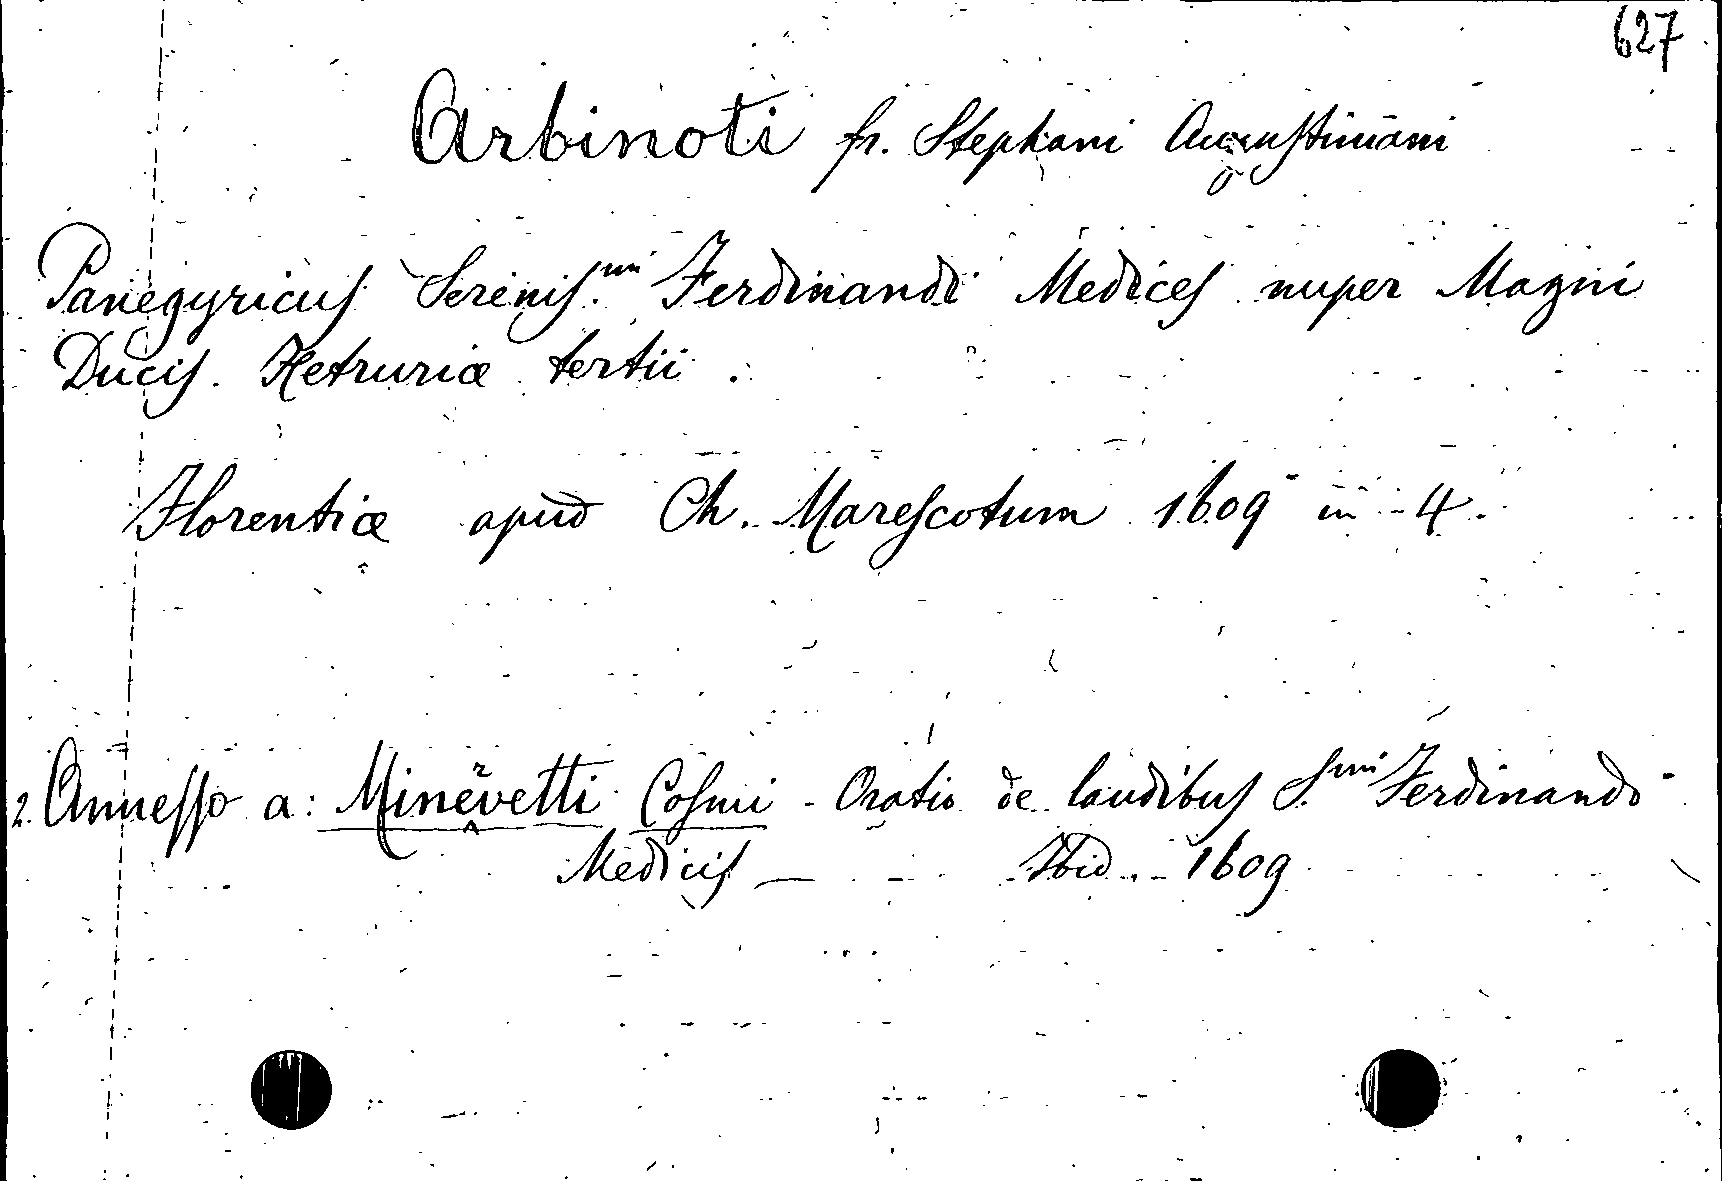 627
Arbinoti fr. Stephani Augustiniani
Panegyricus Serenis.mi Ferdinandi Medices nuper Magni
Ducis Hetruriæ tertii.
Florentiæ apud Ch. Marescotum 1609 in-4.
2. Annesso a: Minervetti Cosmi - Oratio de laudibus S.mi Ferdinando
Medicis — Ibid. - 1609